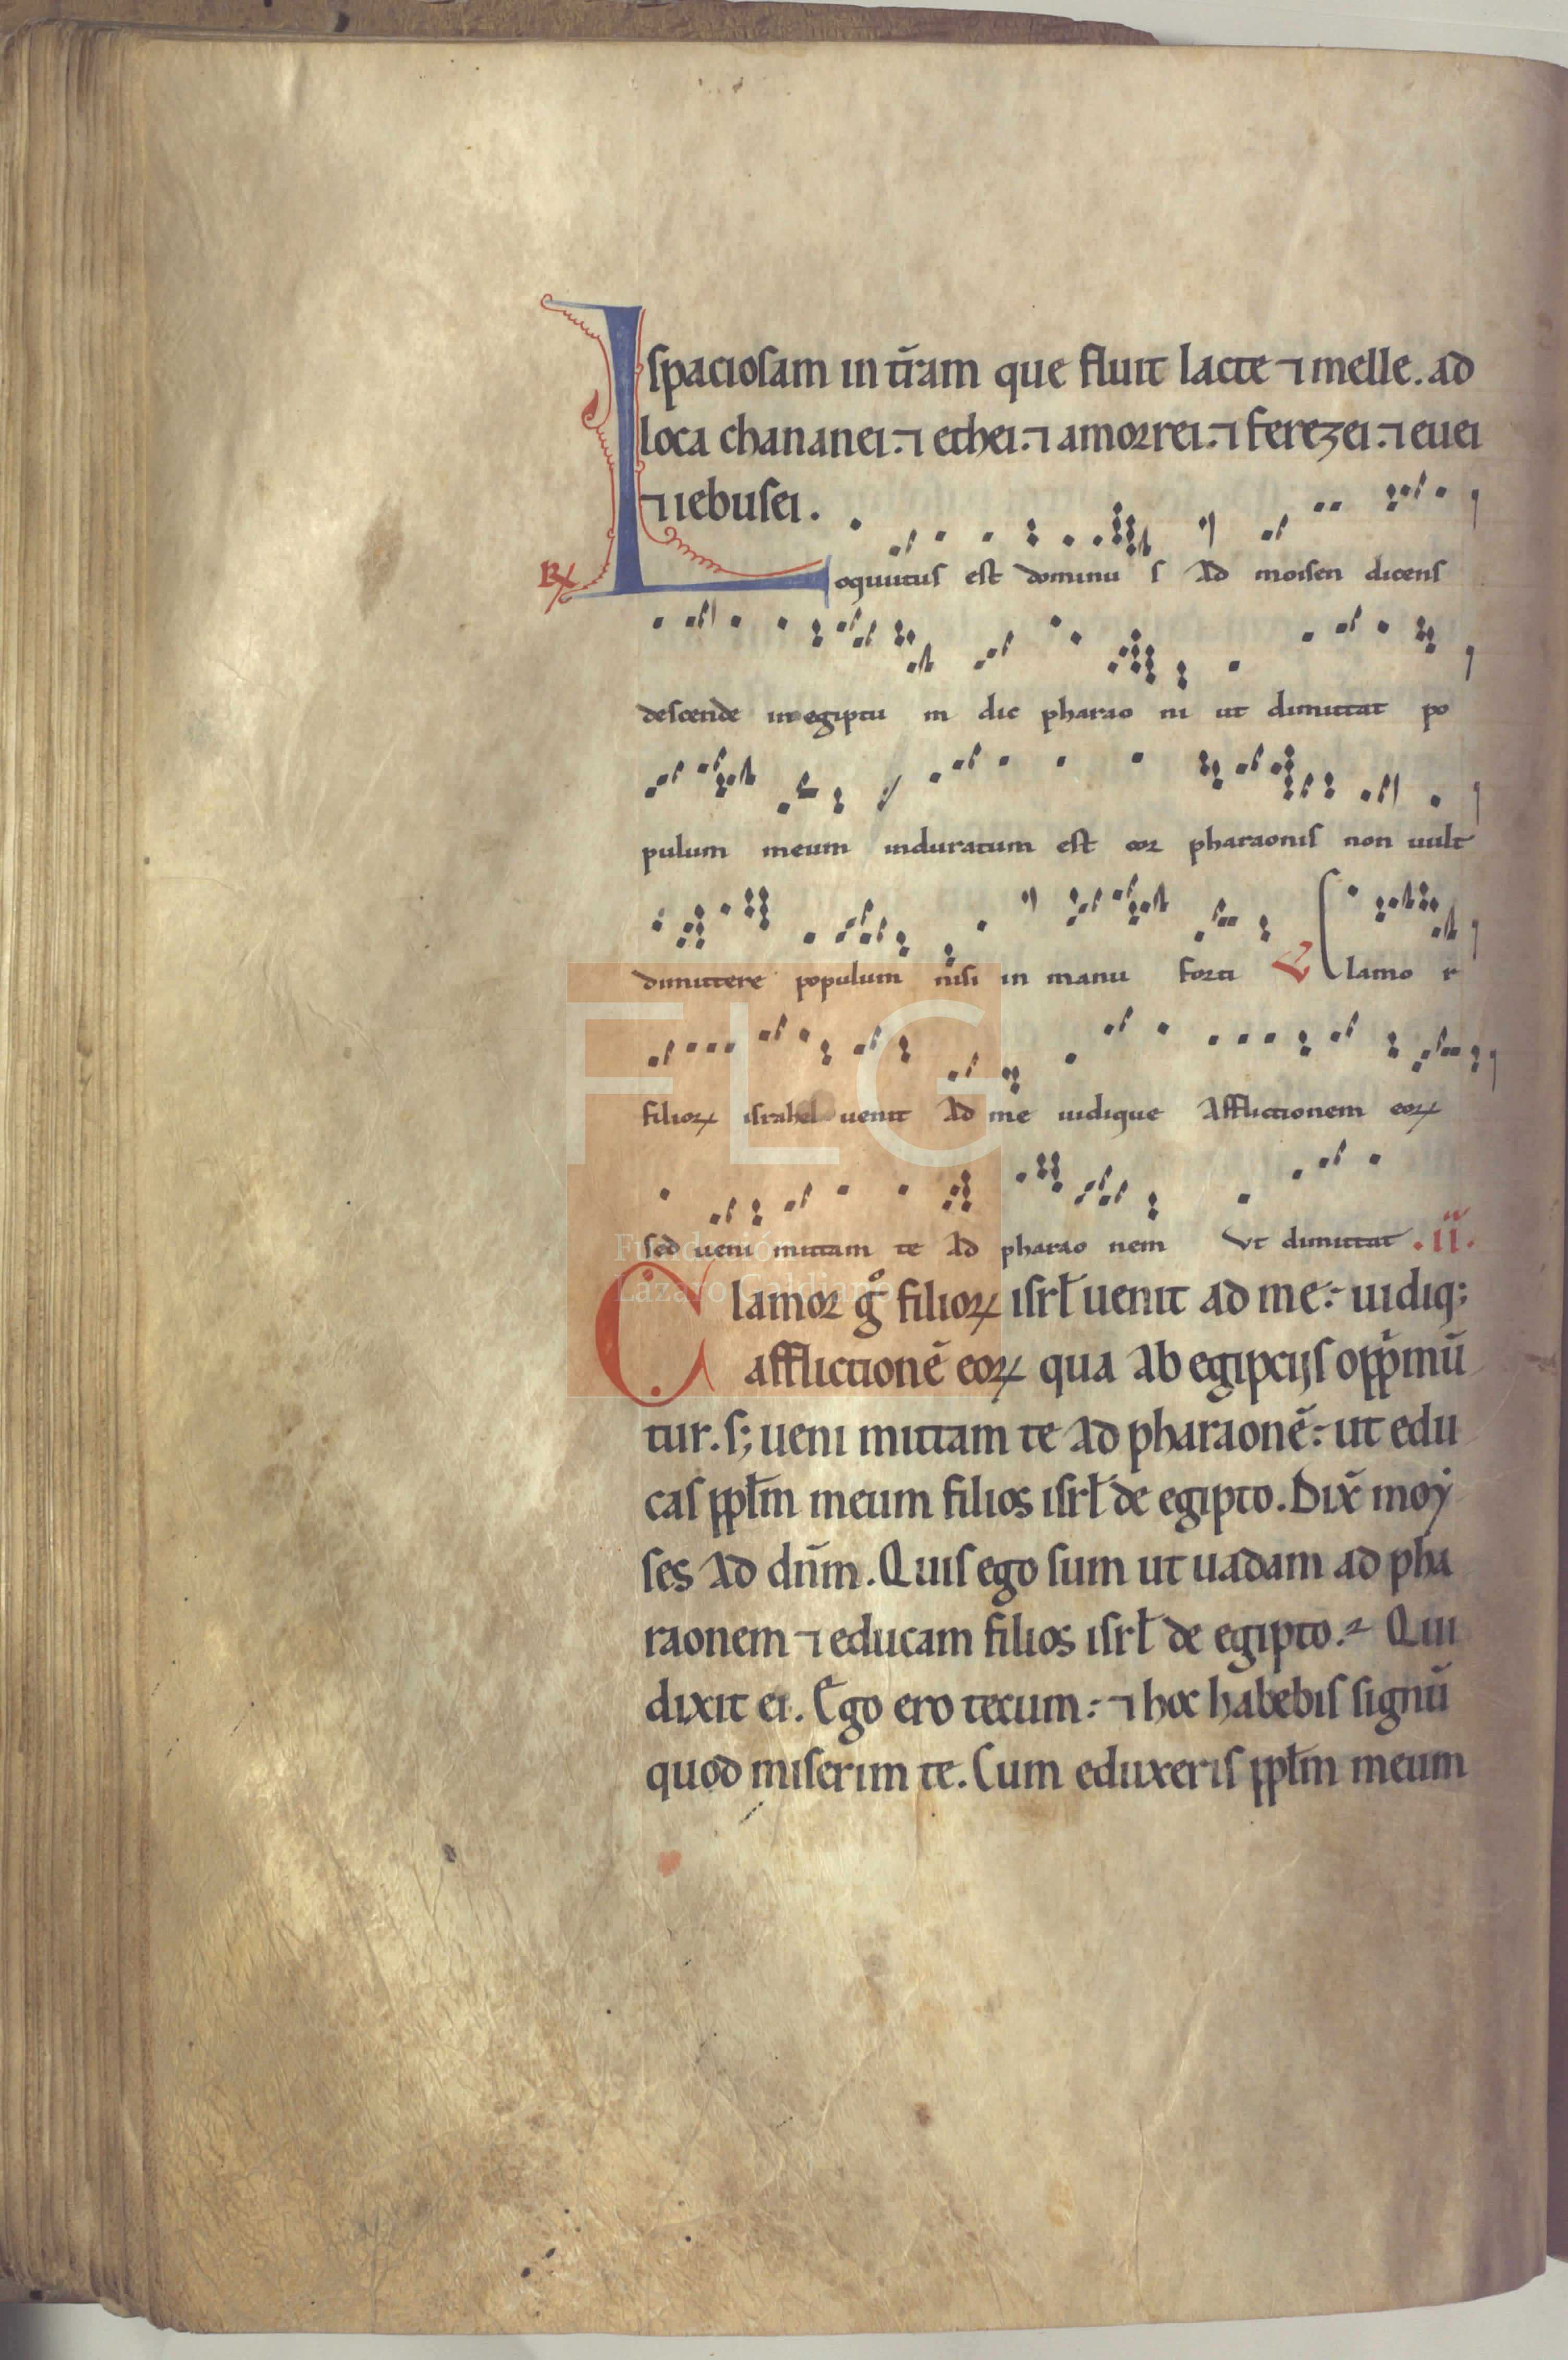 spaciosam in tr̃am que fluit lacte ⁊ melle. ad
loca chananei. ⁊ ethei. ⁊ amorrei. ⁊ ferezei. ⁊ euei
⁊ iebusei.
℞ Loquutus est dominu s Ad moisen dicens
descende in egiptu m dic pharao ni ut dimittat po
pulum meum induratum est cor pharaonis non uult
dimittere populum nisi in manu forti Clamo r
filioꝝ israhel uenit Ad me uidique Afflictionem eoꝝ
sed ueni mittam te Ad pharao nem Vt dimittat .ii.
Clamor gͦ filioꝝ isrł uenit ad me: uidiq;
afflictionẽ eoꝝ qua Ab egipcijs opp̃mũ
tur. s; ueni mittam te Ad pharaonẽ: ut edu
cas ppłm meum filios isrł de egipto. Dix̃ moy
ses Ad dñm. Quis ego sum ut uadam ad pha
raonem ⁊ educam filios isrł de egipto. Qui
dixit ei. Ego ero tecum: ⁊ hoc habebis signũ
quod miserim te. Cum eduxeris ppłm meum
FLG
Fundación
Lázaro Galdiano